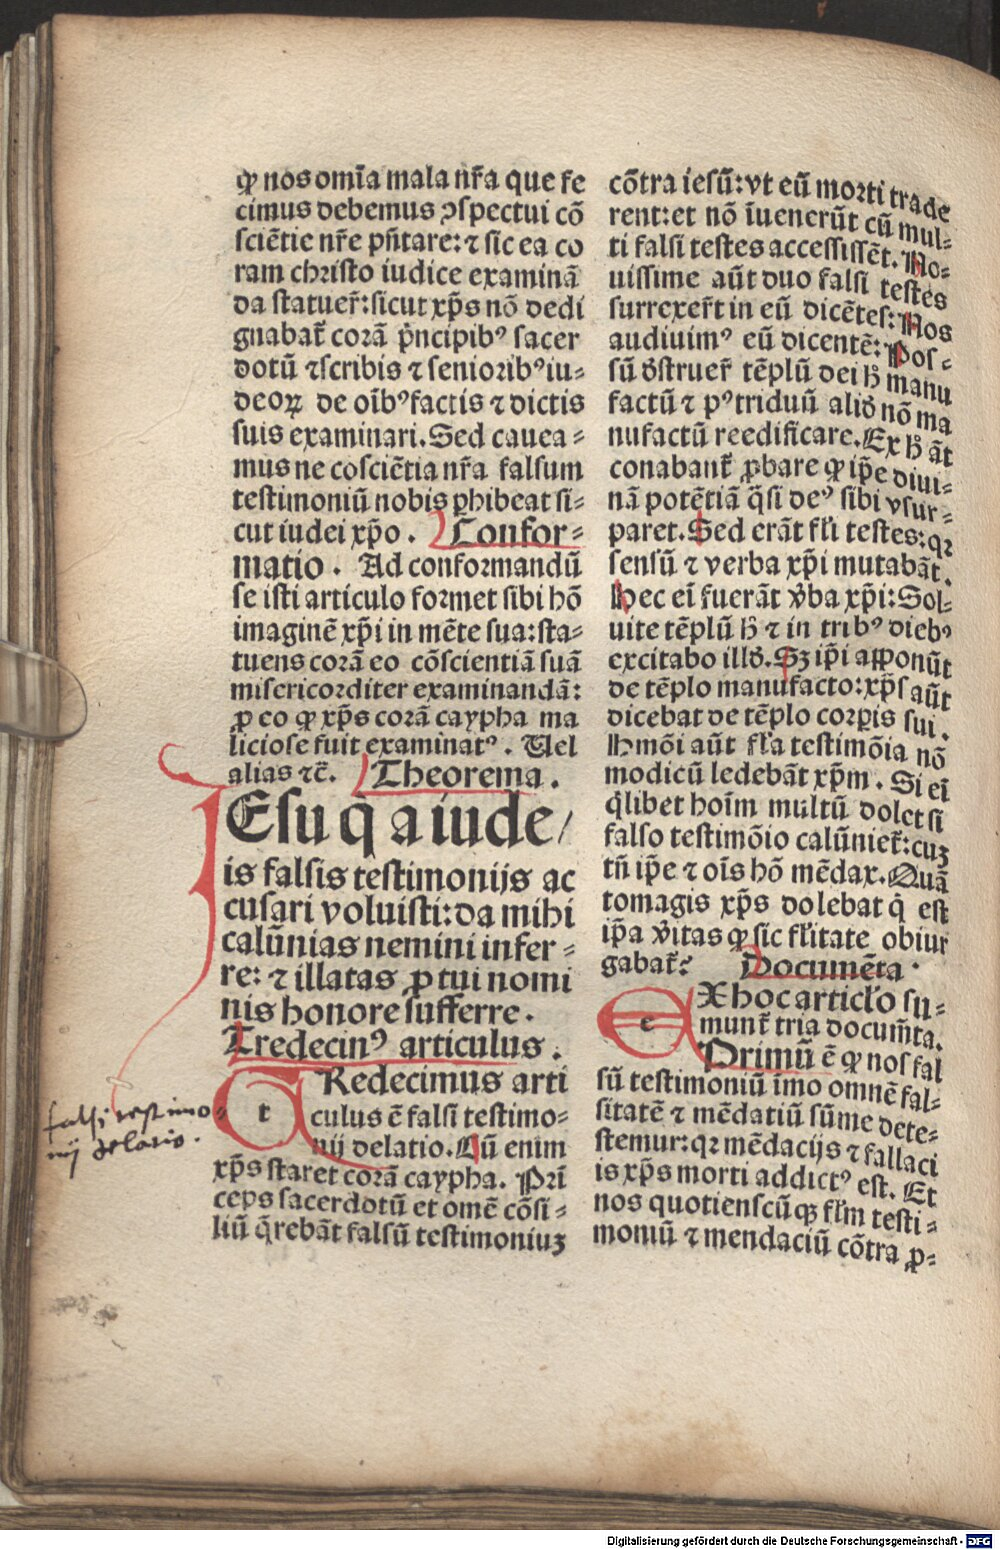 ꝙ nos om̄ia mala nr̄a que fe
cimus debemus ꝯspectui cō
sciētie nr̄e pn̄tare: ⁊ sic ea co
ram christo iudice examinā
da statuer̄: sicut xp̄s nō dedi
gnabat̄ corā p̄ncipibꝰ sacer
dotū ⁊scribis ⁊ senioribꝰiu-
deoꝝ de oībꝰfactis ⁊ dictis
suis examinari. Sed cauea-
mus ne cosciētia nr̄a falsum
testimoniū nobis ꝑhibeat si-
cut iudei xp̄o. Confor-
matio. Ad conformandū
se isti articulo formet sibi hō
imaginē xp̄i in mēte sua: sta-
tuens corā eo cōscientiā suā
misericorditer examinandā:
ꝓ eo ꝙ xp̄s corā caypha ma
liciose fuit examinatꝰ. Uel
alias ⁊c̄. Theorema.
IEsu q̄ a iude/
is falsis testimonijs ac
cusari voluisti: da mihi
calūnias nemini infer-
re: ⁊ illatas ꝓ tui nomi
nis honore sufferre.
Tredecinꝰ articulus.
TRedecimus arti
culus ē falsi testimo-
nij delatio. Cū enim
xp̄s staret corā caypha. Pri
ceps sacerdotū et omē cōsi-
liū q̄rebāt falsū testimoniuꝫ
falsi testimo-
nij delatio.
cōtra iesū: vt eū morti trade
rent: et nō īuenerūt cū mul-
ti falsi testes accessissēt. No-
uissime aūt duo falsi testes
surrexer̄t in eū dicētes: Nos
audiuimꝰ eū dicentē: Pos-
sū dstruer̄ tēplū dei h̄ manu
factū ⁊ pꝰtriduū aliđ nō ma
nufactū reedificare. Ex h̄ āt
conabant̄ ꝓbare ꝙ ip̄e diui-
nā potētiā q̄si deꝰ sibi vsur-
paret. Sed erāt fl̄i testes: qꝛ
sensū ⁊ verba xp̄i mutabāt.
Hec eī fuerāt v̄ba xp̄i: Sol-
uite tēplū h̄ ⁊ in tribꝰ diebꝰ
excitabo illđ. Sꝫ ip̄i apponūt
de tēplo manufacto: xp̄s aūt
dicebat de tēplo corꝑis sui.
Hmōi aūt fl̄a testimōia nō
modicū ledebāt xp̄m. Si eī
q̄libet hoīm multū dolet si
falso testimōio calūniet̄: cuꝫ
tn̄ ip̄e ⁊ oīs hō mēdax. Quā
tomagis xp̄s dolebat q̄ est
ip̄a v̄itas ꝙ sic fl̄itate obiur
gabat̄? Documēta.
EXhoc articl̄o su-
munt̄ tria docum̄ta.
Primū ē ꝙ nos fal
sū testimoniū īmo omnē fal-
sitatē ⁊ mēdatiū sūme dete-
stemur: qꝛ mēdacijs ⁊ fallaci
is xp̄s morti addictꝰ est. Et
nos quotienscūqꝫ fl̄m testi-
moniū ⁊ mendaciū cōtra ꝓ-
Digitalisierung gefördert durch die Deutsche Forschungsgemeinschaft - DFG